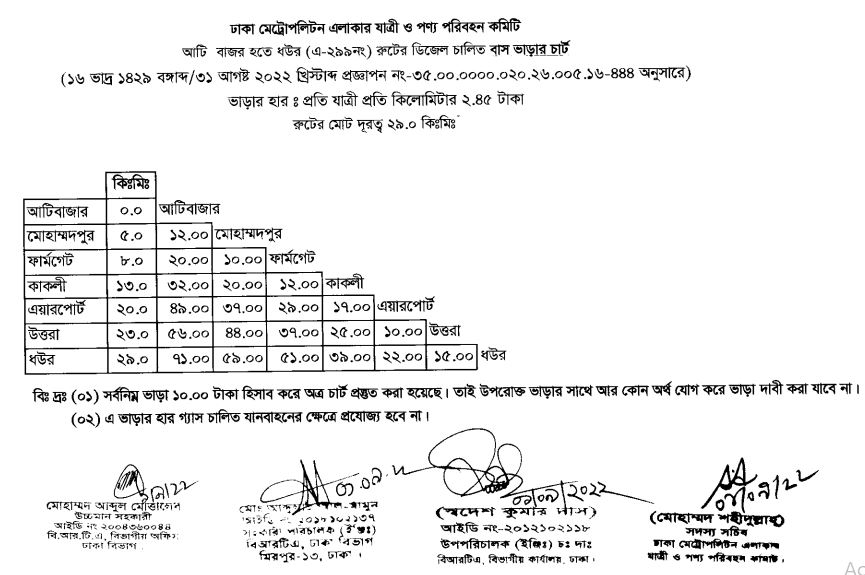 ঢাকা মেট্রোপলিটন এলাকার যাত্রী ও পণ্য পরিবহন কমিটি
আটি বাজর হতে ধউর (এ-২৯৯নং) রুটের ডিজেল চালিত বাস ভাড়ার চার্ট
(১৬ ভাদ্র ১৪২৯ বঙ্গাব্দ/৩১ আগষ্ট ২০২২ খ্রিস্টাব্দ প্রজ্ঞাপন নং-৩৫.০০.০০০০.০২০.২৬.০০৫.১৬-৪৪৪ অনুসারে)
ভাড়ার হার ঃ প্রতি যাত্রী প্রতি কিলোমিটার ২.৪৫ টাকা
রুটের মোট দূরত্ব ২৯.০ কিঃমিঃ
কিঃমিঃ
আটিবাজার ০.০ আটিবাজার
মোহাম্মদপুর ৫.০ ১২.০০ মোহাম্মদপুর
ফার্মগেট ৮.০ ২০.০০ ১০.০০ ফার্মগেট
কাকলী ১৩.০ ৩২.০০ ২০.০০ ১২.০০ কাকলী
এয়ারপোর্ট ২০.০ ৪৯.০০ ৩৭.০০ ২৯.০০ ১৭.০০ এয়ারপোর্ট
উত্তরা ২৩.০ ৫৬.০০ ৪৪.০০ ৩৭.০০ ২৫.০০ ১০.০০ উত্তরা
ধউর ২৯.০ ৭১.০০ ৫৯.০০ ৫১.০০ ৩৯.০০ ২২.০০ ১৫.০০ ধউর
বিঃ দ্রঃ (০১) সর্বনিম্ন ভাড়া ১০.০০ টাকা হিসাব করে অত্র চার্ট প্রস্তুত করা হয়েছে। তাই উপরোক্ত ভাড়ার সাথে আর কোন অর্থ যোগ করে ভাড়া দাবী করা যাবে না।
(০২) এ ভাড়ার হার গ্যাস চালিত যানবাহনের ক্ষেত্রে প্রযোজ্য হবে না।
মোহাম্মদ আব্দুল
উচ্চমান সহকারী
আইডি নং ২০০৪৩৬০০৪৪
বি.আর.টি.এ, বিভাগীয় অফিস
ঢাকা বিভাগ।
মোঃ
সহকারী পরিচালক (ইঞ্জিঃ)
বিআরটিএ, ঢাকা বিভাগ
মিরপুর-১৩, ঢাকা।
০৯/০৯/২০২২
(স্বদেশ কুমার দাস)
আইডি নং-২০১২১০২১১৮
উপপরিচালক (ইঞ্জিঃ) চঃ দাঃ
বিআরটিএ, বিভাগীয় কার্যালয়, ঢাকা।
(মোহাম্মদ শহীদুল্লাহ)
সদস্য সচিব
ঢাকা মেট্রোপলিটন এলাকার
যাত্রী ও পণ্য পরিবহন কমিটি